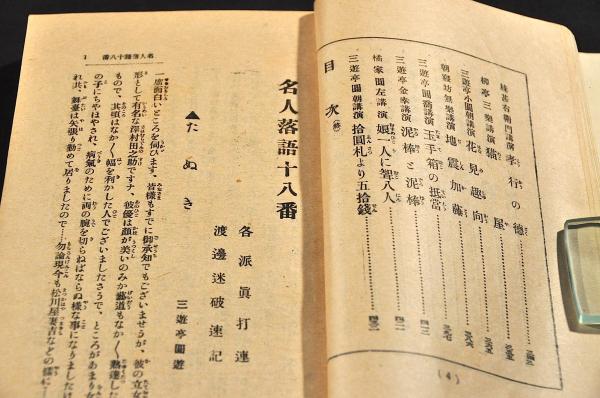 桂甚右衞門講演 孝行の德
柳亭三樂講演 猫屋
三遊亭小圓朝講演 花見趣向
朝寢坊無樂講演 地震加藤
三遊亭圓喬講演 玉手箱の抵當
三遊亭金拳講演 泥棒と泥棒
橘家圓左講演 娘一人に聟八人
三遊亭圓朝講演 拾圓札より五拾錢
目次(終)
(4)
名人落語十八番
1
名人落語十八番
各派眞打連
渡邊迷破速記
▲たぬき
三遊亭圓遊
一席面白いところを伺ひます、皆樣もすでに御承知でもございませうが、彼の立女
形として有名な澤村田之助ですナ、彼優は顏が美いのみか藝道もなか〱熟達した
もので、其頃はなか〱幅を利かした人でございましたさうで、ところがあまり女
の子にちやほやされ、病氣のために兩の腕を切らねばならぬ樣な事になりましたけ
れ共、舞臺は矢張り勤めて居りましたので……勿論現今も松川屋妻吉などの樣に